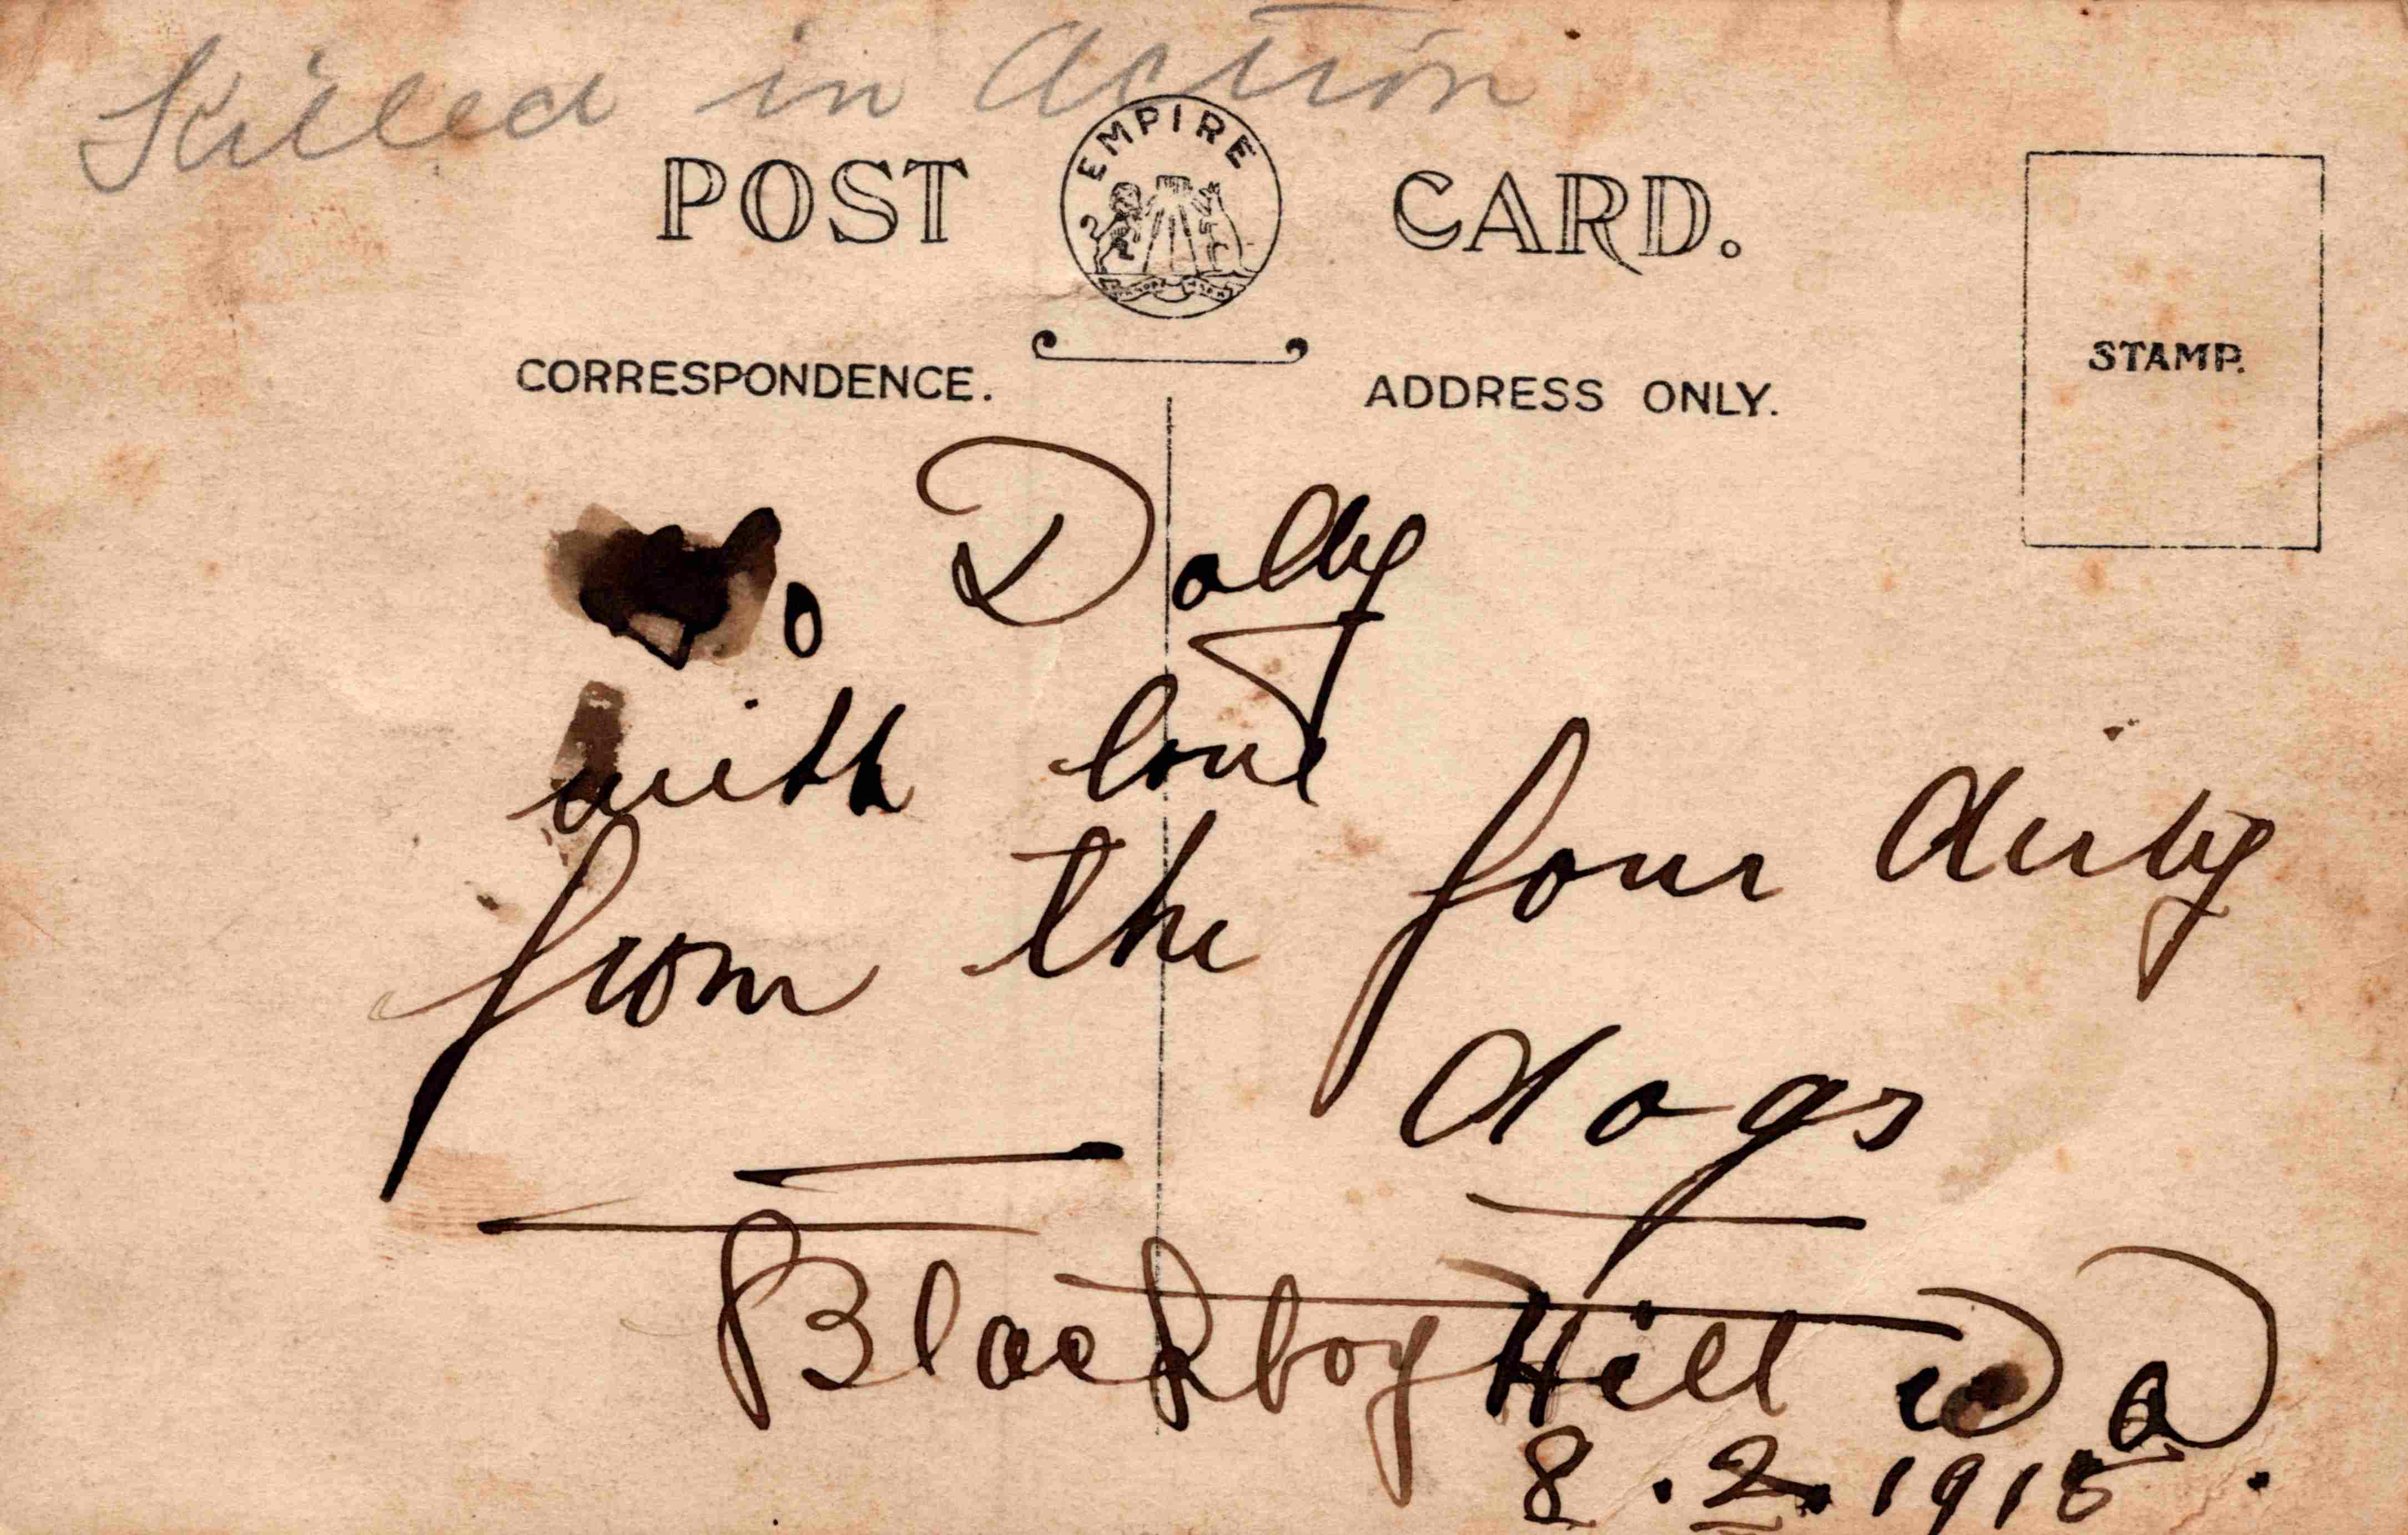 Killed in Action
EMPIRE
POST CARD.
CORRESPONDENCE.
ADDRESS ONLY.
STAMP.
To Dolly
with love
from the four dirty
dogs
Blackboy Hill W A
8.2.1915.